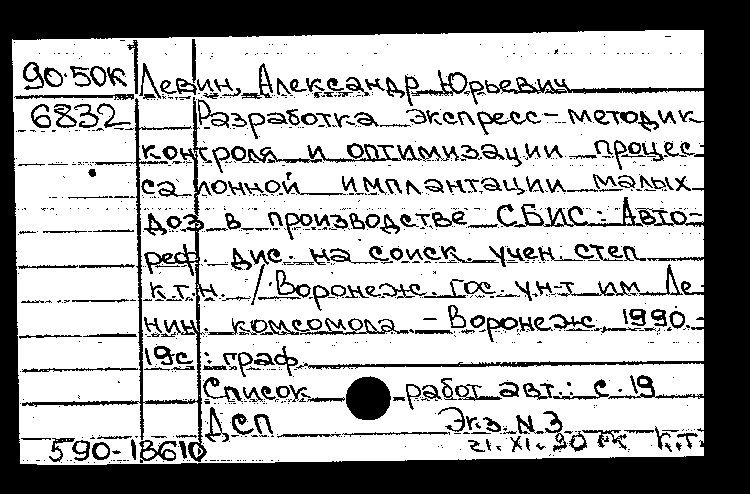 90-50К Левин, Александр Юрьевич
6832 Разработка экспресс-методик
контроля и оптимизации процес-
са ионной имплантации малых
доз в производстве СБИС: Авто-
реф. дис. на соиск. учен. степ
к.т.н. / Воронеж. гос. ун-т им Ле-
нин. комсомола - Воронеж, 1990.-
19с.: граф.
Список работ авт.: с. 19
ДСП Экз. N 3
21.XI.90 К.Т.
590-13610